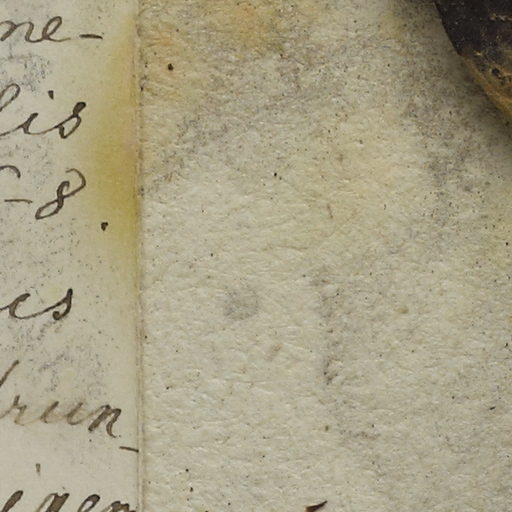 ne-
lis
-8.
is
run-
igen